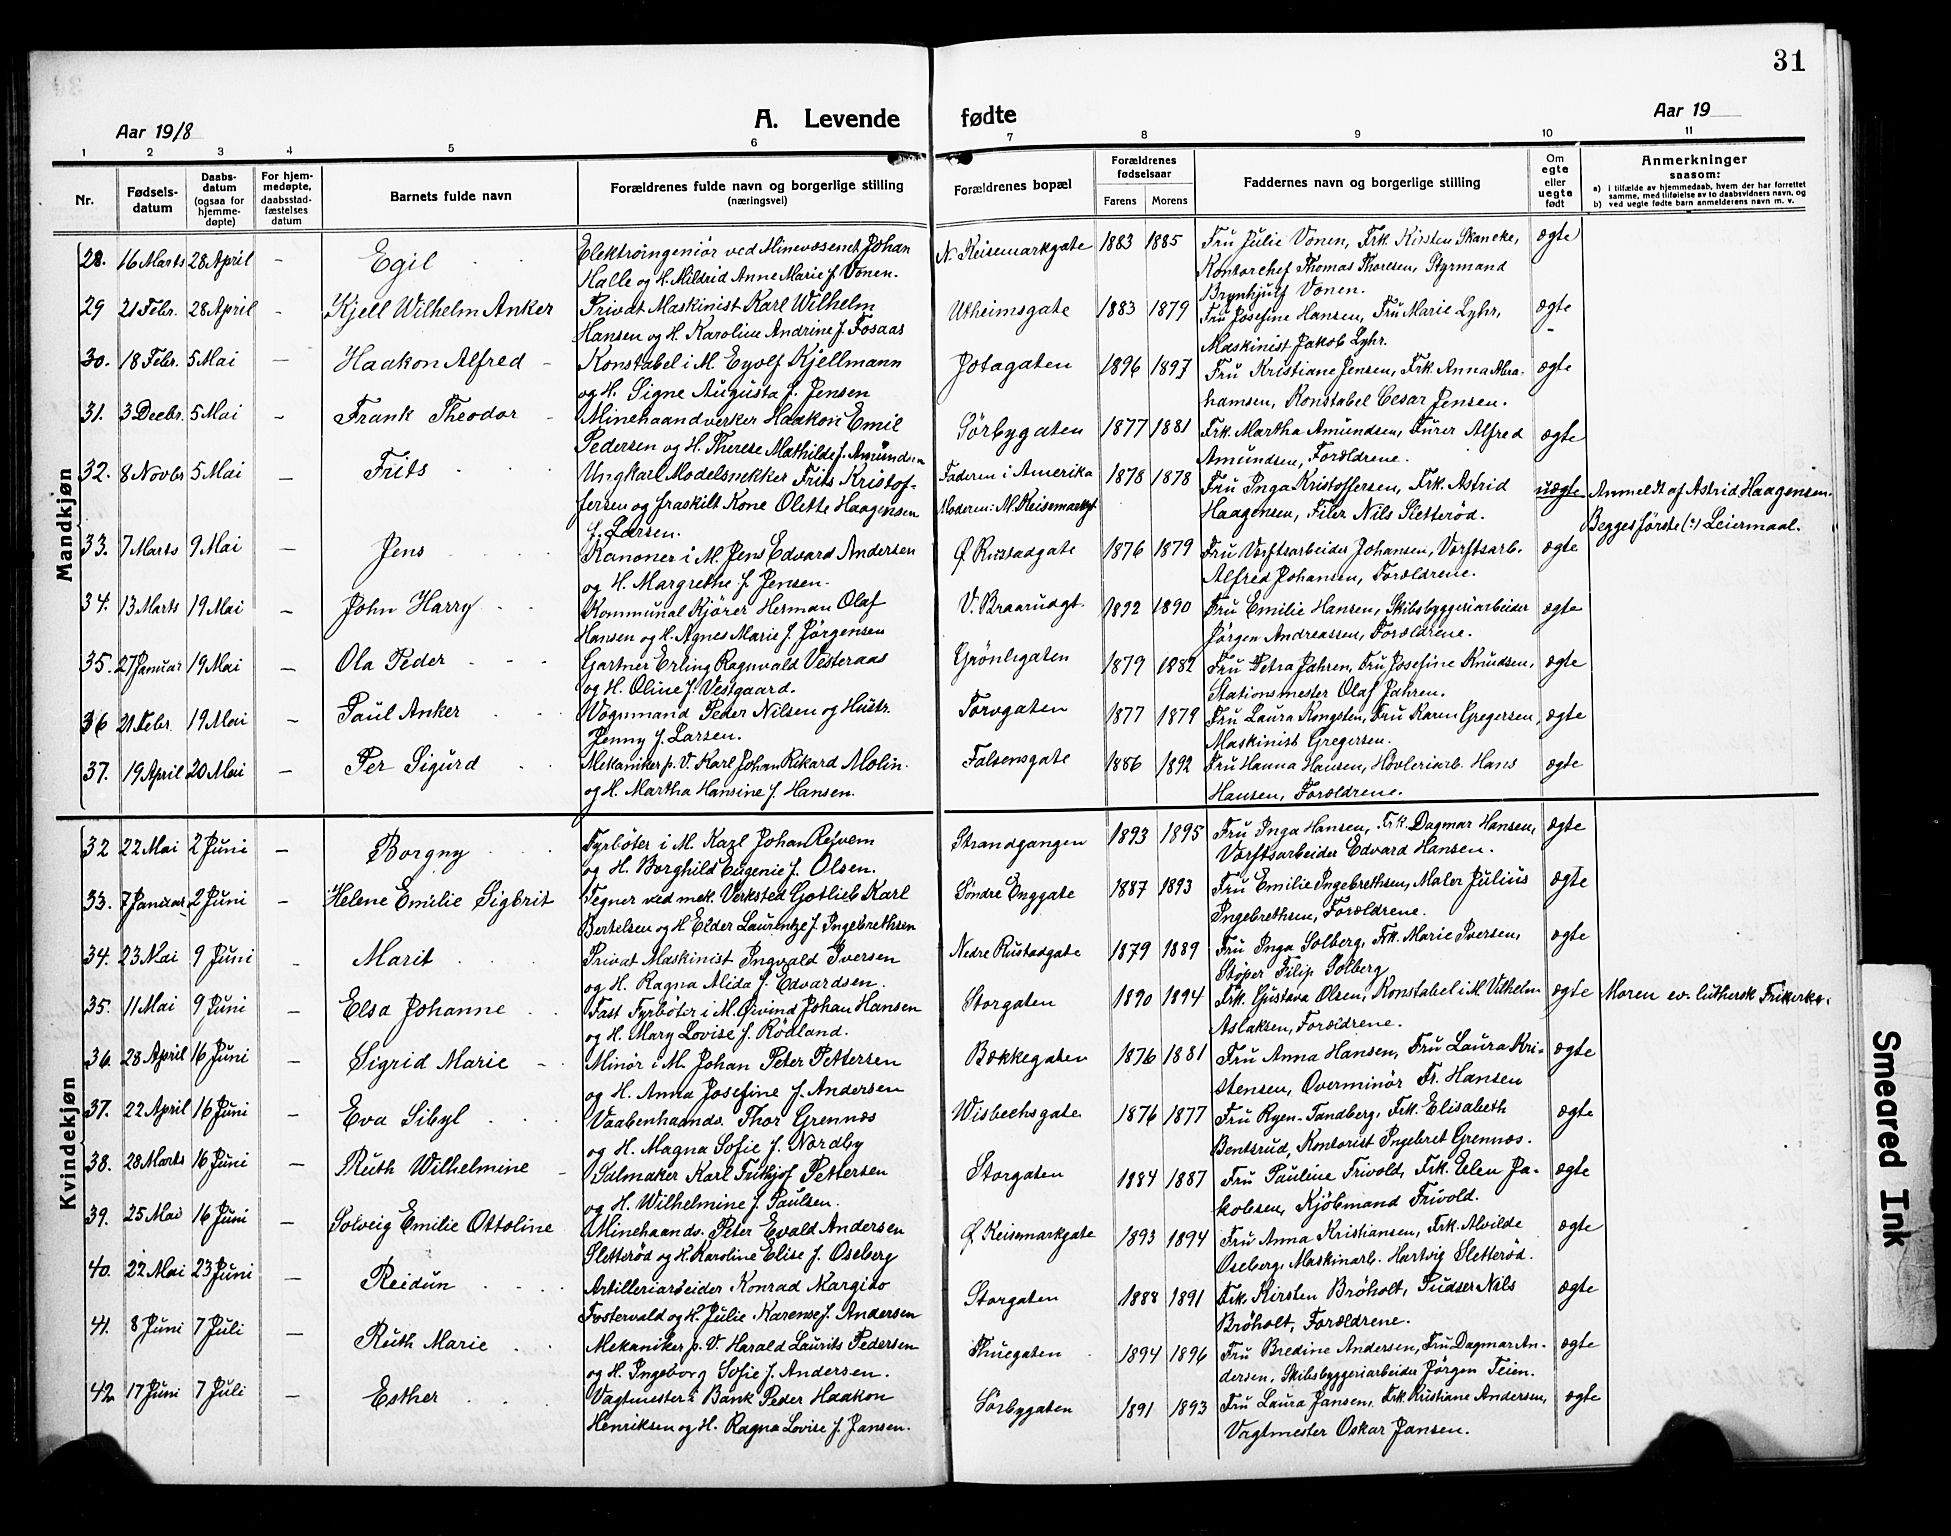 31
Aar 1918
A. Levende fødte
Aar 19
1 2 3 4 5 6 7 8 9 10 11
Nr.
Fødsels-
datum
Daabs-
datum
(ogsaa for
hjemme-
døpte)
For hjem-
medøpte,
daabsstad-
fæstelses
datum
Barnets fulde navn
Forældrenes fulde navn og borgerlige stilling
(næringsvei)
Forældrenes bopæl
Forældrenes
fødselsaar
Farens Morens
Faddernes navn og borgerlige stilling
Om
egte
eller
uegte
født
Anmerkninger
saasom:
a) i tilfælde av hjemmedaab, hvem der har forrettet
samme, med tilføielse av to daabsvidners navn, og
b) ved uegte fødte barn anmelderens navn m. v.
Mandkjøn
28. 16 Marts 28 April — Egil
Elektroingeniør ved Minevæsenet Johan
Halle og H. Mildrid Anne Marie f. Vonen.
N. Keisemarkgate 1883 1885
Fru Julie Vonen, Frk. Kirsten Skancke,
Kontorchef Thomas Thoresen, Styrmand
Brynhjulf Vonen.
ægte
29 21 Febr. 28 April — Kjell Wilhelm Anker
Privat Maskinist Karl Wilhelm
Hansen og H. Karoline Andrine f. Fosaas
Utheimsgate 1883 1879
Fru Josefine Hansen, Fru Marie Lyhr,
Maskinist Jakob Lyhr.
ægte
30. 18 Febr. 5 Mai — Haakon Alfred
Konstabel i M. Eyolf Kjellmann
og H. Signe Augusta f. Jensen
Jotagaten 1896 1897
Fru Kristiane Jensen, Frk. Anna Abra-
hamsen, Konstabel Cesar Jensen.
ægte
31. 3 Decbr. 5 Mai — Frank Theodor
Minehaandverker Haakon Emil
Pedersen og H. Therese Mathilde f. Amundsen
Sörbygaten 1877 1881
Frk. Martha Amundsen, Furer Alfred
Amundsen, Forældrene.
ægte
32. 8 Novbr 5 Mai — Frits
Ungkarl Modelsnekker Frits Kristof-
fersen og fraskilt Kone Olette Haagensen
f. Larsen.
Faderen i Amerika
Moderen: M. Keisemarkgt
1878 1878
Fru Inga Kristoffersen, Frk. Astrid
Haagensen, Filer Nils Sletterød.
uægte
Anmeldt af Astrid Haagensen.
Begges förste (?) Leiermaal.
33. 7 Marts 9 Mai — Jens
Kanoner i M. Jens Edvard Andersen
og H. Margrethe f. Jensen.
Ø Rustadgate 1876 1879
Fru Verftsarbeider Johansen, Verftsarb.
Alfred Johansen, Forældrene.
ægte
34. 13 Marts 19 Mai — John Harry
Kommunal Kjører Herman Olaf
Hansen og H. Agnes Marie f. Jørgensen
V. Braarudgt. 1892 1890
Fru Emilie Hansen, Skibsbyggeriarbeider
Jørgen Andreassen, Forældrene.
ægte
35. 27 Januar 19 Mai — Ola Peder
Gartner Erling Ragnvald Vesteraas
og H. Oline f. Vestgaard.
Grönligaten 1879 1882
Fru Petra Jahren, Fru Josefine Knudsen,
Stationsmester Olaf Jahren.
ægte
36 21 Febr. 19 Mai — Paul Anker
Vognmand Peder Nilsen og Hustr.
Jenny f. Larsen.
Torvgaten 1877 1879
Fru Laura Kongsten, Fru Karen Gregersen,
Maskinist Gregersen.
ægte
37. 19 April 20 Mai — Per Sigurd
Mekaniker p. V. Karl Johan Rikard Molin.
og H. Martha Hansine f. Hansen.
Falsensgate 1886 1892
Fru Hanna Hansen, Hövleriarb. Hans
Hansen, Forældrene.
ægte
Kvindekjøn
32 22 Mai 2 Juni — Borgny
Fyrböter i M. Karl Johan Refvem
og H. Borghild Eugenie f. Olsen.
Strandgangen 1893 1895
Fru Inga Hansen, Frk. Dagmar Hansen,
Verftsarbeider Edvard Hansen.
ægte
33. 7 Januar 2 Juni — Helene Emilie Sigbrit
Tegner ved mek. Verksted Gotlieb Karl
Bertelsen og H. Elder Laurentze f. Ingebrethsen
Søndre Enggate 1887 1893
Fru Emilie Ingebrethsen, Maler Julius
Ingebrethsen, Forældrene.
ægte
34. 23 Mai 9 Juni — Marit
Privat Maskinist Ingvald Iversen
og H. Ragna Alida f. Edvardsen.
Nedre Rustadgate 1879 1889
Fru Inga Solberg, Frk. Marie Iversen,
Støper Filip Solberg
ægte
35. 11 Mai 9 Juni — Elsa Johanne
Fast Fyrböter i M. Øivind Johan Hansen
og H. Mary Lovise f. Rödland.
Storgaten 1890 1894
Frk. Gustava Olsen, Konstabel i M Vilhelm
Aslaksen, Forældrene.
ægte
Moren ev. luthersk Frikerke.
36. 28 April 16 Juni — Sigrid Marie
Minør i M. Johan Peter Pettersen
og H. Anna Josefine f. Andersen
Bækkegaten 1876 1881
Fru Anna Hansen, Fru Laura Kri-
stensen, Overminör Fr. Hansen
ægte
37. 22 April 16 Juni — Eva Sibyl
Vaabenhaandv. Thor Grennæs
og H. Magna Sofie f. Nordby
Wisbechsgate 1876 1877
Fru Ryen-Tandberg, Frk. Elisabeth
Bentsrud, Kontorist Ingebret Grennæs.
ægte
38. 28 Marts 16 Juni — Ruth Wilhelmine
Salmaker Karl Frithjof Pettersen
og H. Wilhelmine f. Paulsen.
Storgaten 1884 1887
Fru Pauline Frivold, Frk. Ellen Ja-
kobsen, Kjöbmand Frivold.
ægte
39. 25 Mai 16 Juni — Solveig Emilie Ottoline
Minehaandv. Peter Evald Andersen
Sletterød og H. Karoline Elise f. Oseberg
Ø Keisemarkgate 1893 1894
Fru Anna Kristiansen, Frk. Alvilde
Oseberg, Maskinarb. Hartvig Sletterød.
ægte
40. 22 Mai 23 Juni — Reidun
Artilleriarbeider Konrad Margido
Fostervold og H. Julie Karense f. Andersen
Storgaten 1888 1891
Frk. Kirsten Bröholt, Pudser Nils
Bröholt, Forældrene.
ægte
41. 8 Juni 7 Juli — Ruth Marie
Mekaniker p. V. Harald Laurits Pedersen
og H. Ingeborg Sofie f. Andersen.
Thuegaten 1894 1896
Fru Bredine Andersen, Fru Dagmar An-
dersen, Skibsbyggeriarbeider Jörgen Teien.
ægte
42 17 Juni 7 Juli — Esther
Vagtmester i Bank Peder Haakon
Henriksen og H. Ragna Lovise f. Jansen.
Sörbygaten 1891 1893
Fru Laura Jansen, Frk. Kristiane Andersen,
Vagtmester Oskar Jansen.
ægte
Smeared Ink